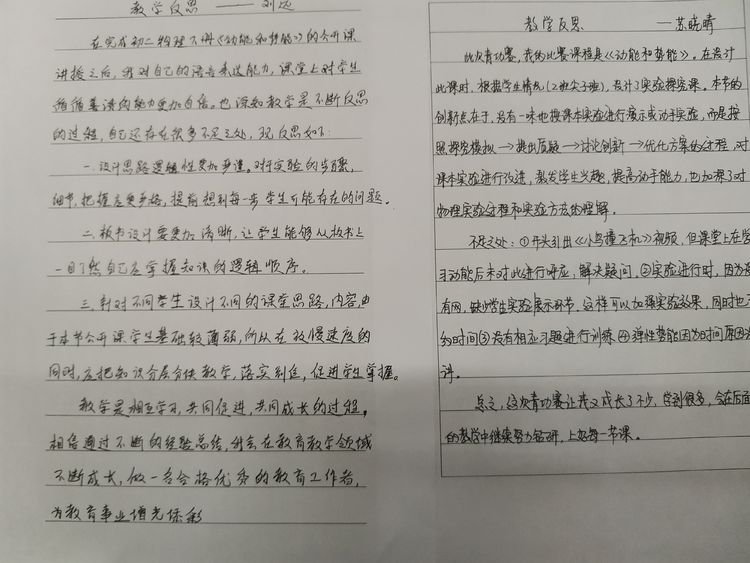 教学反思 —— 刘远
在完成初二物理下册《动能和势能》的公开课
讲授之后，我对自己的语言表达能力，课堂上对学生
循循善诱的能力更加自信。也深知教学是不断反思
的过程，自己还存在很多不足之处，现反思如下：
一.设计思路逻辑性更加步谨。对实验的步骤，
细节，把握应更严格，提前想到每一步学生可能存在的问题。
二.板书设计要更加清晰，让学生能够从板书上
一目了然自己应掌握知识的逻辑顺序。
三.针对不同学生设计不同的课堂思路，内容，由
于本节公开课学生基础较薄弱，所以在放慢速度的
同时，应把知识分层分块教学，落实到位，促进学生掌握。
教学是相互学习，共同促进，共同成长的过程。
相信通过不断的经验总结，我会在教育教学领域
不断成长，做一名合格优秀的教育工作者，
为教育事业增光添彩
教学反思 —苏晓晴
此次青功赛，我的比赛课程是《动能和势能》。在设计
此课时，根据学生情况（2班尖子班），设计了实验探究课。本节的
创新点在于，没有一味地按课本实验进行展示或动手实验，而是按
照探究模拟→提出质疑→讨论创新→优化方案的过程，对
课本实验进行改进，激发学生兴趣，提高动手能力，也加深了对
物理实验过程和实验方法的理解。
不足之处：①开头引出《小鸟撞飞机》视频，但课堂上在学
习动能后未对此进行呼应，解决疑问。②实验进行时，因为没
有网，缺少学生实验展示环节，这样可以加强实验效果，同时也节
约时间③没有相应习题进行训练④弹性势能因为时间原因没
讲。
总之，这次青功赛让我又成长了不少，学到很多，会在后面
的教学中继续努力钻研，上好每一节课。